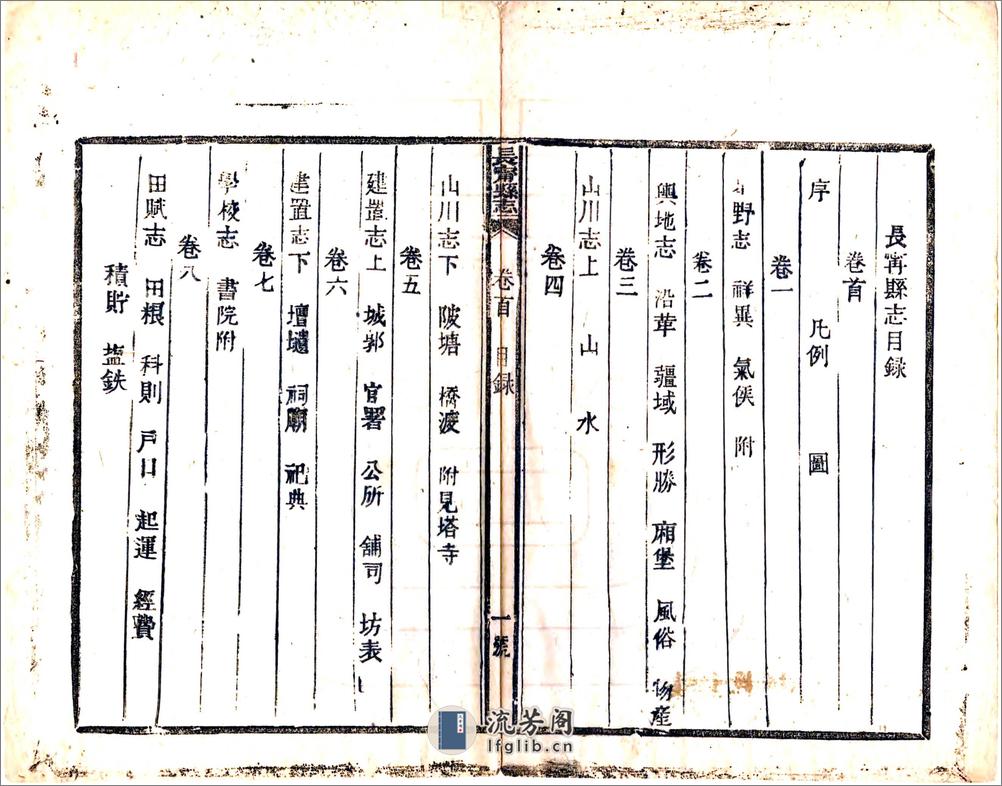 長甯縣志目録
卷首
序 凡例 圖
卷一
野志 祥異 氣侯 附
卷二
輿地志 沿革 疆域 形勝 廂堡 風俗 物産
卷三
山川志上 山 水
卷四
長甯縣志 卷首 目録 一號
山川志下 陂塘 橋渡 附見塔寺
卷五
建置志上 城郭 官署 公所 舖司 坊表
卷六
建置志下 壇壝 祠廟 祀典
卷七
學校志 書院附
卷八
田賦志 田根 科則 戶口 起運 經費
積貯 塩鉄
流芳阁
lfglib.cn